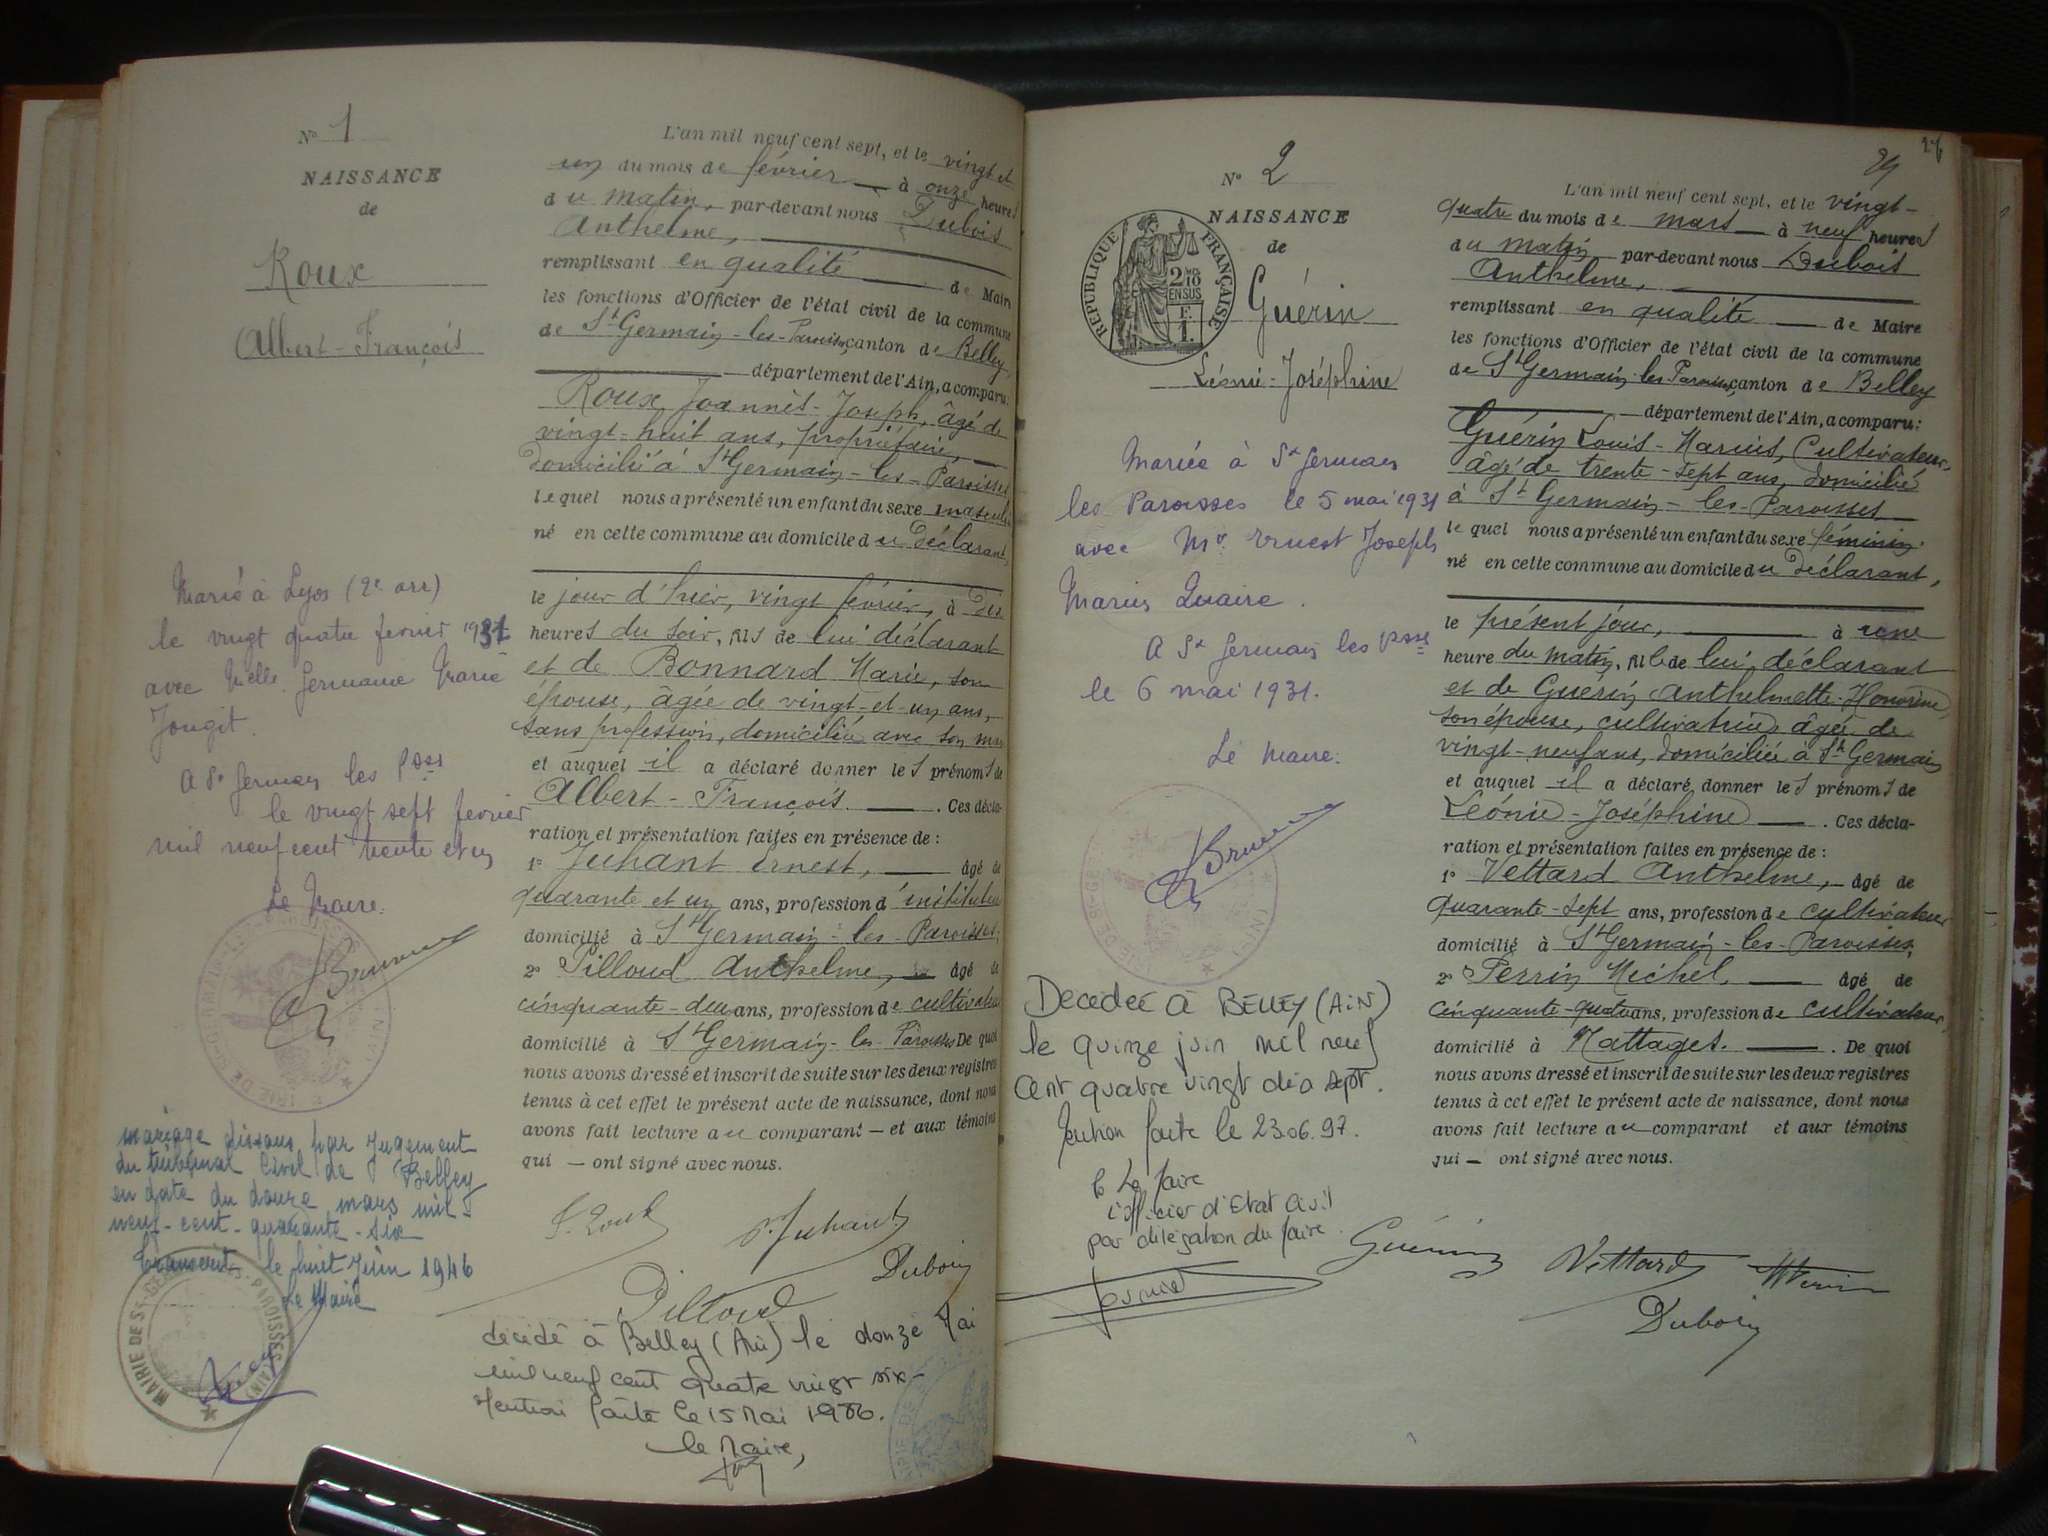 N° 1
NAISSANCE
de
Roux
Albert-François
Marié à Lyon (2e arr)
le vingt quatre fevrier 1931
avec Melle Germaine Marie
Jougit.
A St Germain les Psses
le vingt sept fevrier
mil neuf cent trente et un
Le Maire.
mariage dissous par jugement
du tribunal Civil de Belley
en date du douze mars mil
neuf-cent-quarante-six
Transcrit le huit juin 1946
Le Maire
MAIRIE DE ST-GERMAIN-LES-PAROISSES (AIN)
L'an mil neuf cent sept, et le vingt et
un du mois de février à onze heures
du matin, par-devant nous Dubois
Anthelme,
remplissant en qualité de Maire
les fonctions d'Officier de l'état civil de la commune
de St Germain-les-Paroisses, canton de Belley,
département de l'Ain, a comparu:
Roux Joannès-Joseph, âgé de
vingt-huit ans, propriétaire,
domicilié à St Germain-les-Paroisses
lequel nous a présenté un enfant du sexe masculin
né en cette commune au domicile du déclarant,
le jour d'hier, vingt février, à dix
heures du soir, fils de lui déclarant
et de Bonnard Marie, son
épouse, âgée de vingt-et-un ans,
sans profession, domiciliée avec son mari
et auquel il a déclaré donner les prénoms de
Albert-François. Ces décla-
ration et présentation faites en présence de :
1° Juhant Ernest, âgé de
quarante et un ans, profession d'instituteur
domicilié à St Germain-les-Paroisses,
2° Pilloud Anthelme, âgé de
cinquante-deux ans, profession de cultivateur
domicilié à St Germain-les-Paroisses De quoi
nous avons dressé et inscrit de suite sur les deux registres
tenus à cet effet le présent acte de naissance, dont nous
avons fait lecture au comparant et aux témoins
qui ont signé avec nous.
J. Roux
E. Juhant
Pilloud
Dubois
décédé à Belley (Ain) le douze Mai
mil neuf cent quatre vingt six
Mention faite le 15 Mai 1986.
le Maire,
26
N° 2
NAISSANCE
de
REPUBLIQUE FRANÇAISE
2/10 EN SUS
Guérin
Léonie-Joséphine
Mariée à St Germain
les Paroisses le 5 mai 1931
avec Mr Ernest Joseph
Marius Quaire.
A St Germain les Psses
le 6 mai 1931.
Le Maire.
Décédée à BELLEY (AIN)
le quinze juin mil neuf
cent quatre vingt dix sept.
Mention faite le 23.06.97.
P Le Maire
L'officier d'Etat Civil
par délégation du Maire
L'an mil neuf cent sept, et le vingt-
quatre du mois de mars à neuf heures
du matin par-devant nous Dubois
Anthelme,
remplissant en qualité de Maire
les fonctions d'Officier de l'état civil de la commune
de St Germain-les-Paroisses, canton de Belley
département de l'Ain, a comparu:
Guérin Louis-Marius, Cultivateur,
âgé de trente-sept ans, domicilié
à St Germain-les-Paroisses
lequel nous a présenté un enfant du sexe féminin
né en cette commune au domicile du déclarant,
le présent jour, à une
heure du matin, fille de lui déclarant
et de Guérin Anthelmette-Honorine,
son épouse, cultivatrice âgée de
vingt-neuf ans, domiciliée à St Germain
et auquel il a déclaré donner les prénoms de
Léonie-Joséphine. Ces décla-
ration et présentation faites en présence de :
1° Vettard Anthelme, âgé de
quarante-sept ans, profession de cultivateur
domicilié à St Germain-les-Paroisses,
2° Perrin Michel, âgé de
cinquante-quatre ans, profession de cultivateur,
domicilié à Nattages. De quoi
nous avons dressé et inscrit de suite sur les deux registres
tenus à cet effet le présent acte de naissance, dont nous
avons fait lecture au comparant et aux témoins
qui ont signé avec nous.
Guérin
Vettard
Perrin
Dubois